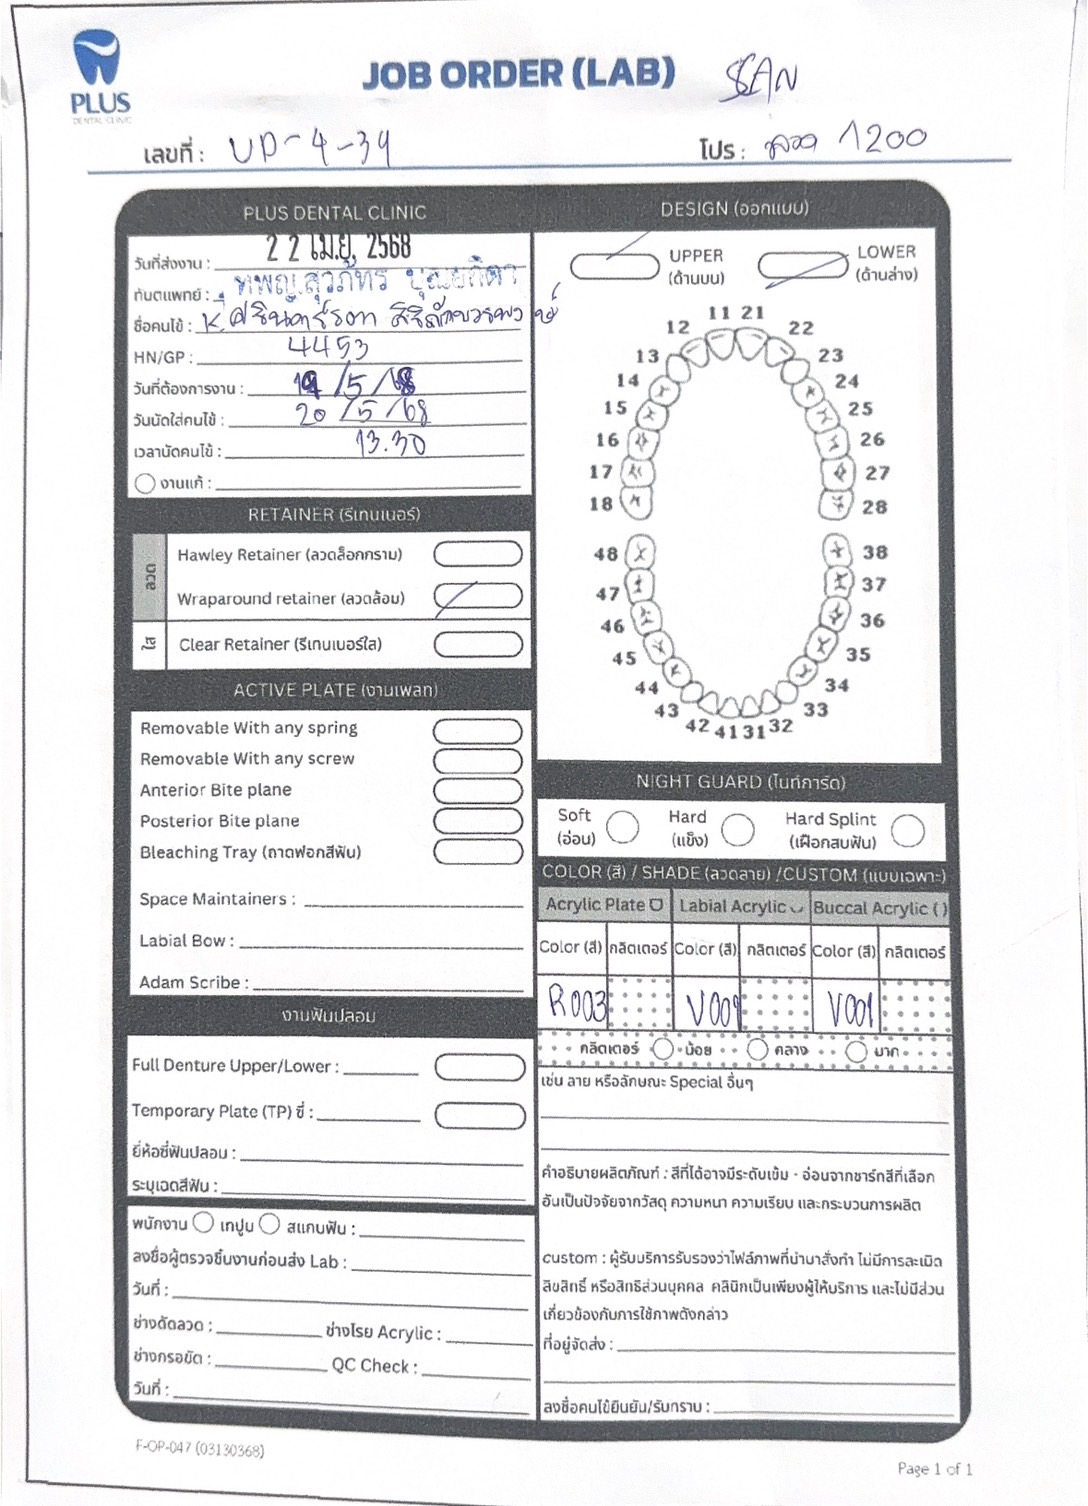 PLUS
DENTAL CLINIC
JOB ORDER (LAB)
SCAN
เลขที่ : UP-4-34
โปร : ลวด 1200
PLUS DENTAL CLINIC
วันที่ส่งงาน : 22 เม.ย. 2568
ทันตแพทย์ : ทพญ.สุวภัทร
ชื่อคนไข้ :
HN/GP : 4453
วันที่ต้องการงาน : 19/5/68
วันนัดใส่คนไข้ : 20/5/68
เวลานัดคนไข้ : 13.30
งานแก้ :
RETAINER (รีเทนเนอร์)
ลวด
Hawley Retainer (ลวดล็อกกราม)
Wraparound retainer (ลวดล้อม)
ใส
Clear Retainer (รีเทนเนอร์ใส)
ACTIVE PLATE (งานเพลท)
Removable With any spring
Removable With any screw
Anterior Bite plane
Posterior Bite plane
Bleaching Tray (ถาดฟอกสีฟัน)
Space Maintainers :
Labial Bow :
Adam Scribe :
งานฟันปลอม
Full Denture Upper/Lower :
Temporary Plate (TP) ซี่ :
ยี่ห้อซี่ฟันปลอม :
ระบุเฉดสีฟัน :
พนักงาน เทปูน สแกนฟัน :
ลงชื่อผู้ตรวจชิ้นงานก่อนส่ง Lab :
วันที่ :
ช่างดัดลวด : ช่างโรย Acrylic :
ช่างกรอขัด : QC Check :
วันที่ :
DESIGN (ออกแบบ)
UPPER (ด้านบน)
LOWER (ด้านล่าง)
11 21
12 22
13 23
14 24
15 25
16 26
17 27
18 28
48 38
47 37
46 36
45 35
44 34
43 33
42 41 31 32
NIGHT GUARD (ไนท์การ์ด)
Soft (อ่อน)
Hard (แข็ง)
Hard Splint (เฝือกสบฟัน)
COLOR (สี) / SHADE (ลวดลาย) /CUSTOM (แบบเฉพาะ)
Acrylic Plate Labial Acrylic Buccal Acrylic ( )
Color (สี) กลิตเตอร์ Color (สี) กลิตเตอร์ Color (สี) กลิตเตอร์
R003 V001 V001
กลิตเตอร์ น้อย กลาง มาก
เช่น ลาย หรือลักษณะ Special อื่นๆ
คำอธิบายผลิตภัณฑ์ : สีที่ได้อาจมีระดับเข้ม - อ่อนจากชาร์ทสีที่เลือก
อันเป็นปัจจัยจากวัสดุ ความหนา ความเรียบ และกระบวนการผลิต
custom : ผู้รับบริการรับรองว่าไฟล์ภาพที่นำมาสั่งทำ ไม่มีการละเมิด
ลิขสิทธิ์ หรือสิทธิส่วนบุคคล คลินิกเป็นเพียงผู้ให้บริการ และไม่มีส่วน
เกี่ยวข้องกับการใช้ภาพดังกล่าว
ที่อยู่จัดส่ง :
ลงชื่อคนไข้ยืนยัน/รับทราบ :
F-OP-047 (03130368)
Page 1 of 1